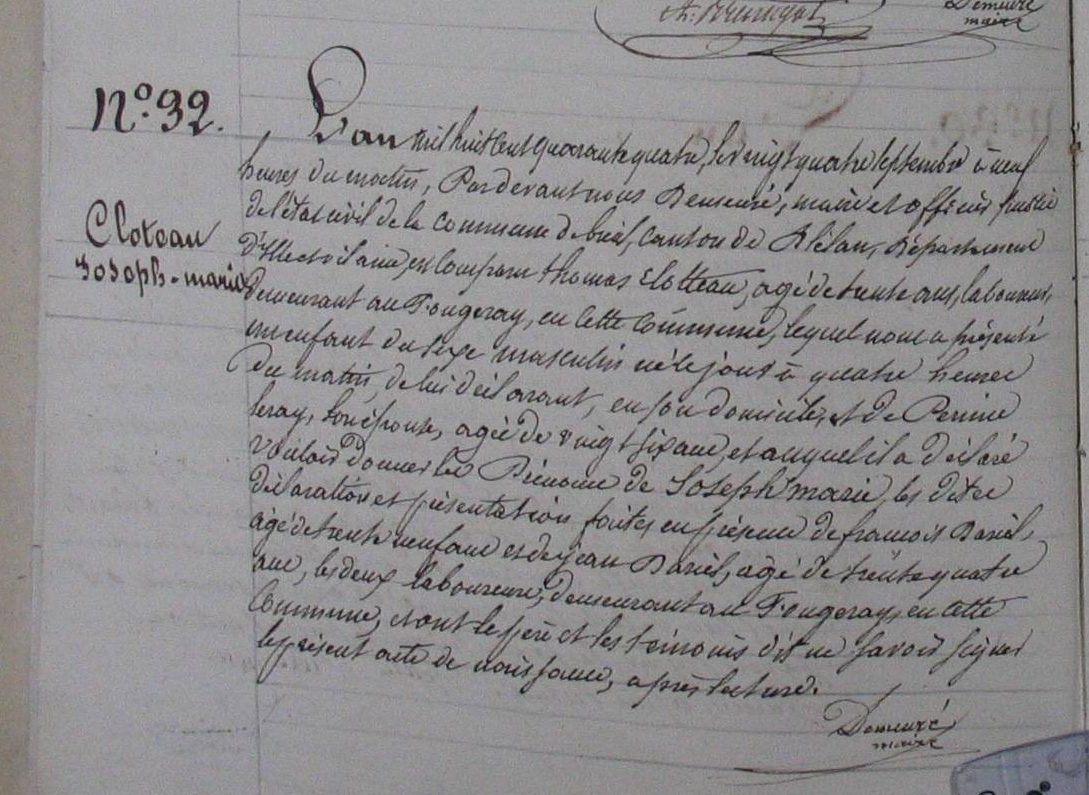 Demeuré
maire
N.o 32.
Cloteau
Joseph-marie
L'an mil huit cent quarante quatre, le vingt quatre septembre à neuf
heures du matin, Pardevant nous Demeuré, maire et officier public
de l'état civil de la commune de bréal, canton de Plélan, département
d'Ille et vilaine, est Comparu thomas Clotteau, agé de trente ans, laboureur,
demeurant au Fougeray, en Cette Commune, lequel nous a présenté
un enfant du sexe masculin né le jour à quatre heures
du matin, de lui déclarant, en son domicile, et de Perrine
leray, son épouse, agée de vingt six ans, et auquel il a déclaré
vouloir donner les Prénoms de Joseph marie, les dites
déclaration et présentation faites en présence de francois
agé de trente neuf ans et de jean agé de trente quatre
ans, les deux laboureurs, demeurant au Fougeray, en Cette
Commune, et ont le père et les témoins dit ne savoir signer
le présent acte de naissance, après lecture.
Demeuré
maire